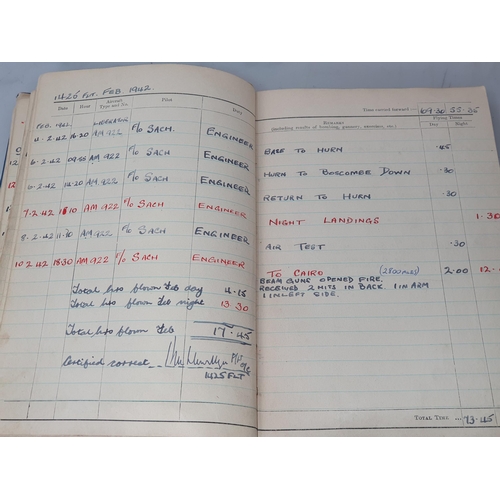 1425 FLT. FEB. 1942.
Date Hour Aircraft Type and No. Pilot Duty
FEB. 1942. LIBERATOR
4.2.42 14.20 AM 922 F/O SACH. ENGINEER
6.2.42 09.55 AM 922 F/O SACH. ENGINEER
6.2.42 14.20 AM 922 F/O SACH. ENGINEER
7.2.42 18.10 AM 922 F/O SACH ENGINEER
8.2.42 11.30 AM 922 F/O SACH ENGINEER
10.2.42 18.30 AM 922 F/O SACH ENGINEER
Total hrs flown Feb day 4.15
Total hrs flown Feb night 13.30
Total hrs flown Feb 17.45
Certified correct
1425 FLT
Time carried forward:— 109.30 55.35
REMARKS Flying Times
(including results of bombing, gunnery, exercises, etc.) Day Night
BASE TO HURN .45
HURN TO BOSCOMBE DOWN .30
RETURN TO HURN .30
NIGHT LANDINGS 1.30
AIR TEST .30
TO CAIRO (2800 miles) 2.00 12.
BEAM GUNS OPENED FIRE.
RECEIVED 2 HITS IN BACK. 1 IN ARM
1 IN LEFT SIDE.
TOTAL TIME 73.45